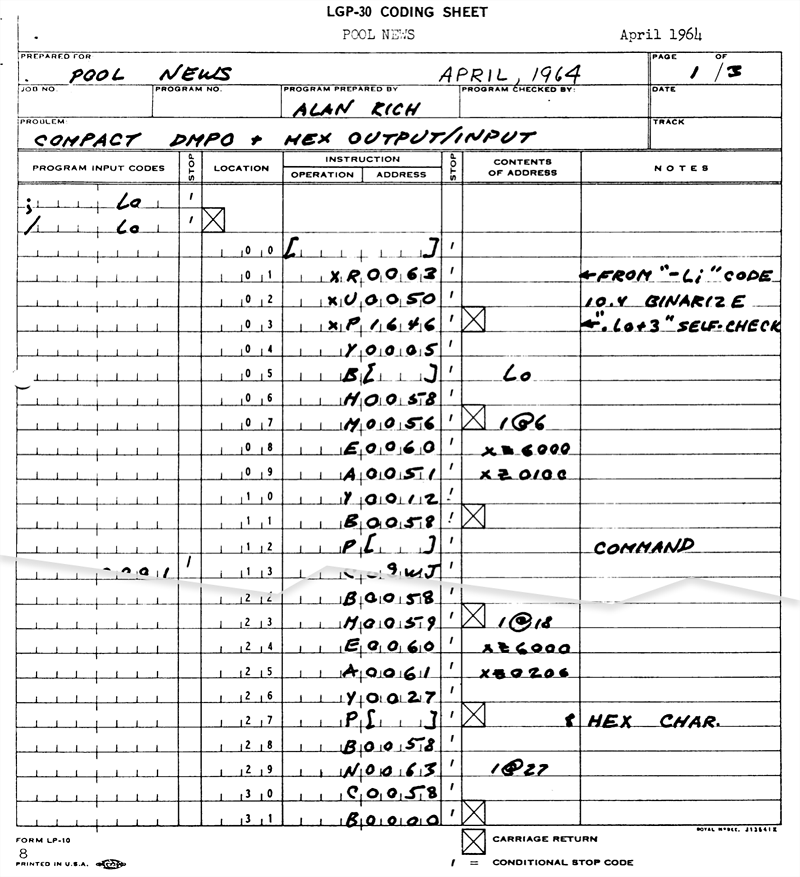 LGP-30 CODING SHEET
POOL NEWS April 1964
PREPARED FOR PAGE OF
POOL NEWS APRIL, 1964 1 / 3
JOB NO. PROGRAM NO. PROGRAM PREPARED BY PROGRAM CHECKED BY: DATE
ALAN RICH
PROBLEM TRACK
COMPACT DMPO + HEX OUTPUT/INPUT
PROGRAM INPUT CODES STOP LOCATION INSTRUCTION STOP CONTENTS OF ADDRESS NOTES
OPERATION ADDRESS
; Lo '
/ Lo '
00 [ ] '
01 XR0063 ' ←FROM "-Li" CODE
02 XU0050 ' 10.4 BINARIZE
03 XP1646 ' ←".Lo+3" SELF-CHECK
04 Y0005 '
05 B[ ] ' Lo
06 H0058 '
07 M0056 ' 1@6
08 E0060 ' XZ6000
09 A0051 ' XZ0100
10 Y0012 '
11 B0058 '
12 P[ ] ' COMMAND
' 13
22 B0058 '
23 M0059 ' 1@18
24 E0060 ' XZ6000
25 A0061 '
26 Y0027 '
27 P[ ] ' 8 HEX CHAR.
28 B0058 '
29 N0063 ' 1@27
30 C0058 '
31 B0000 '
FORM LP-10 CARRIAGE RETURN
8
PRINTED IN U.S.A. ' = CONDITIONAL STOP CODE